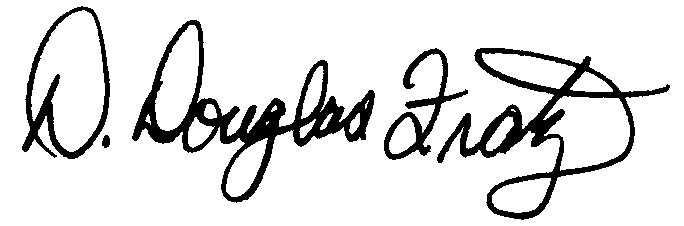 D. Douglas Fratz